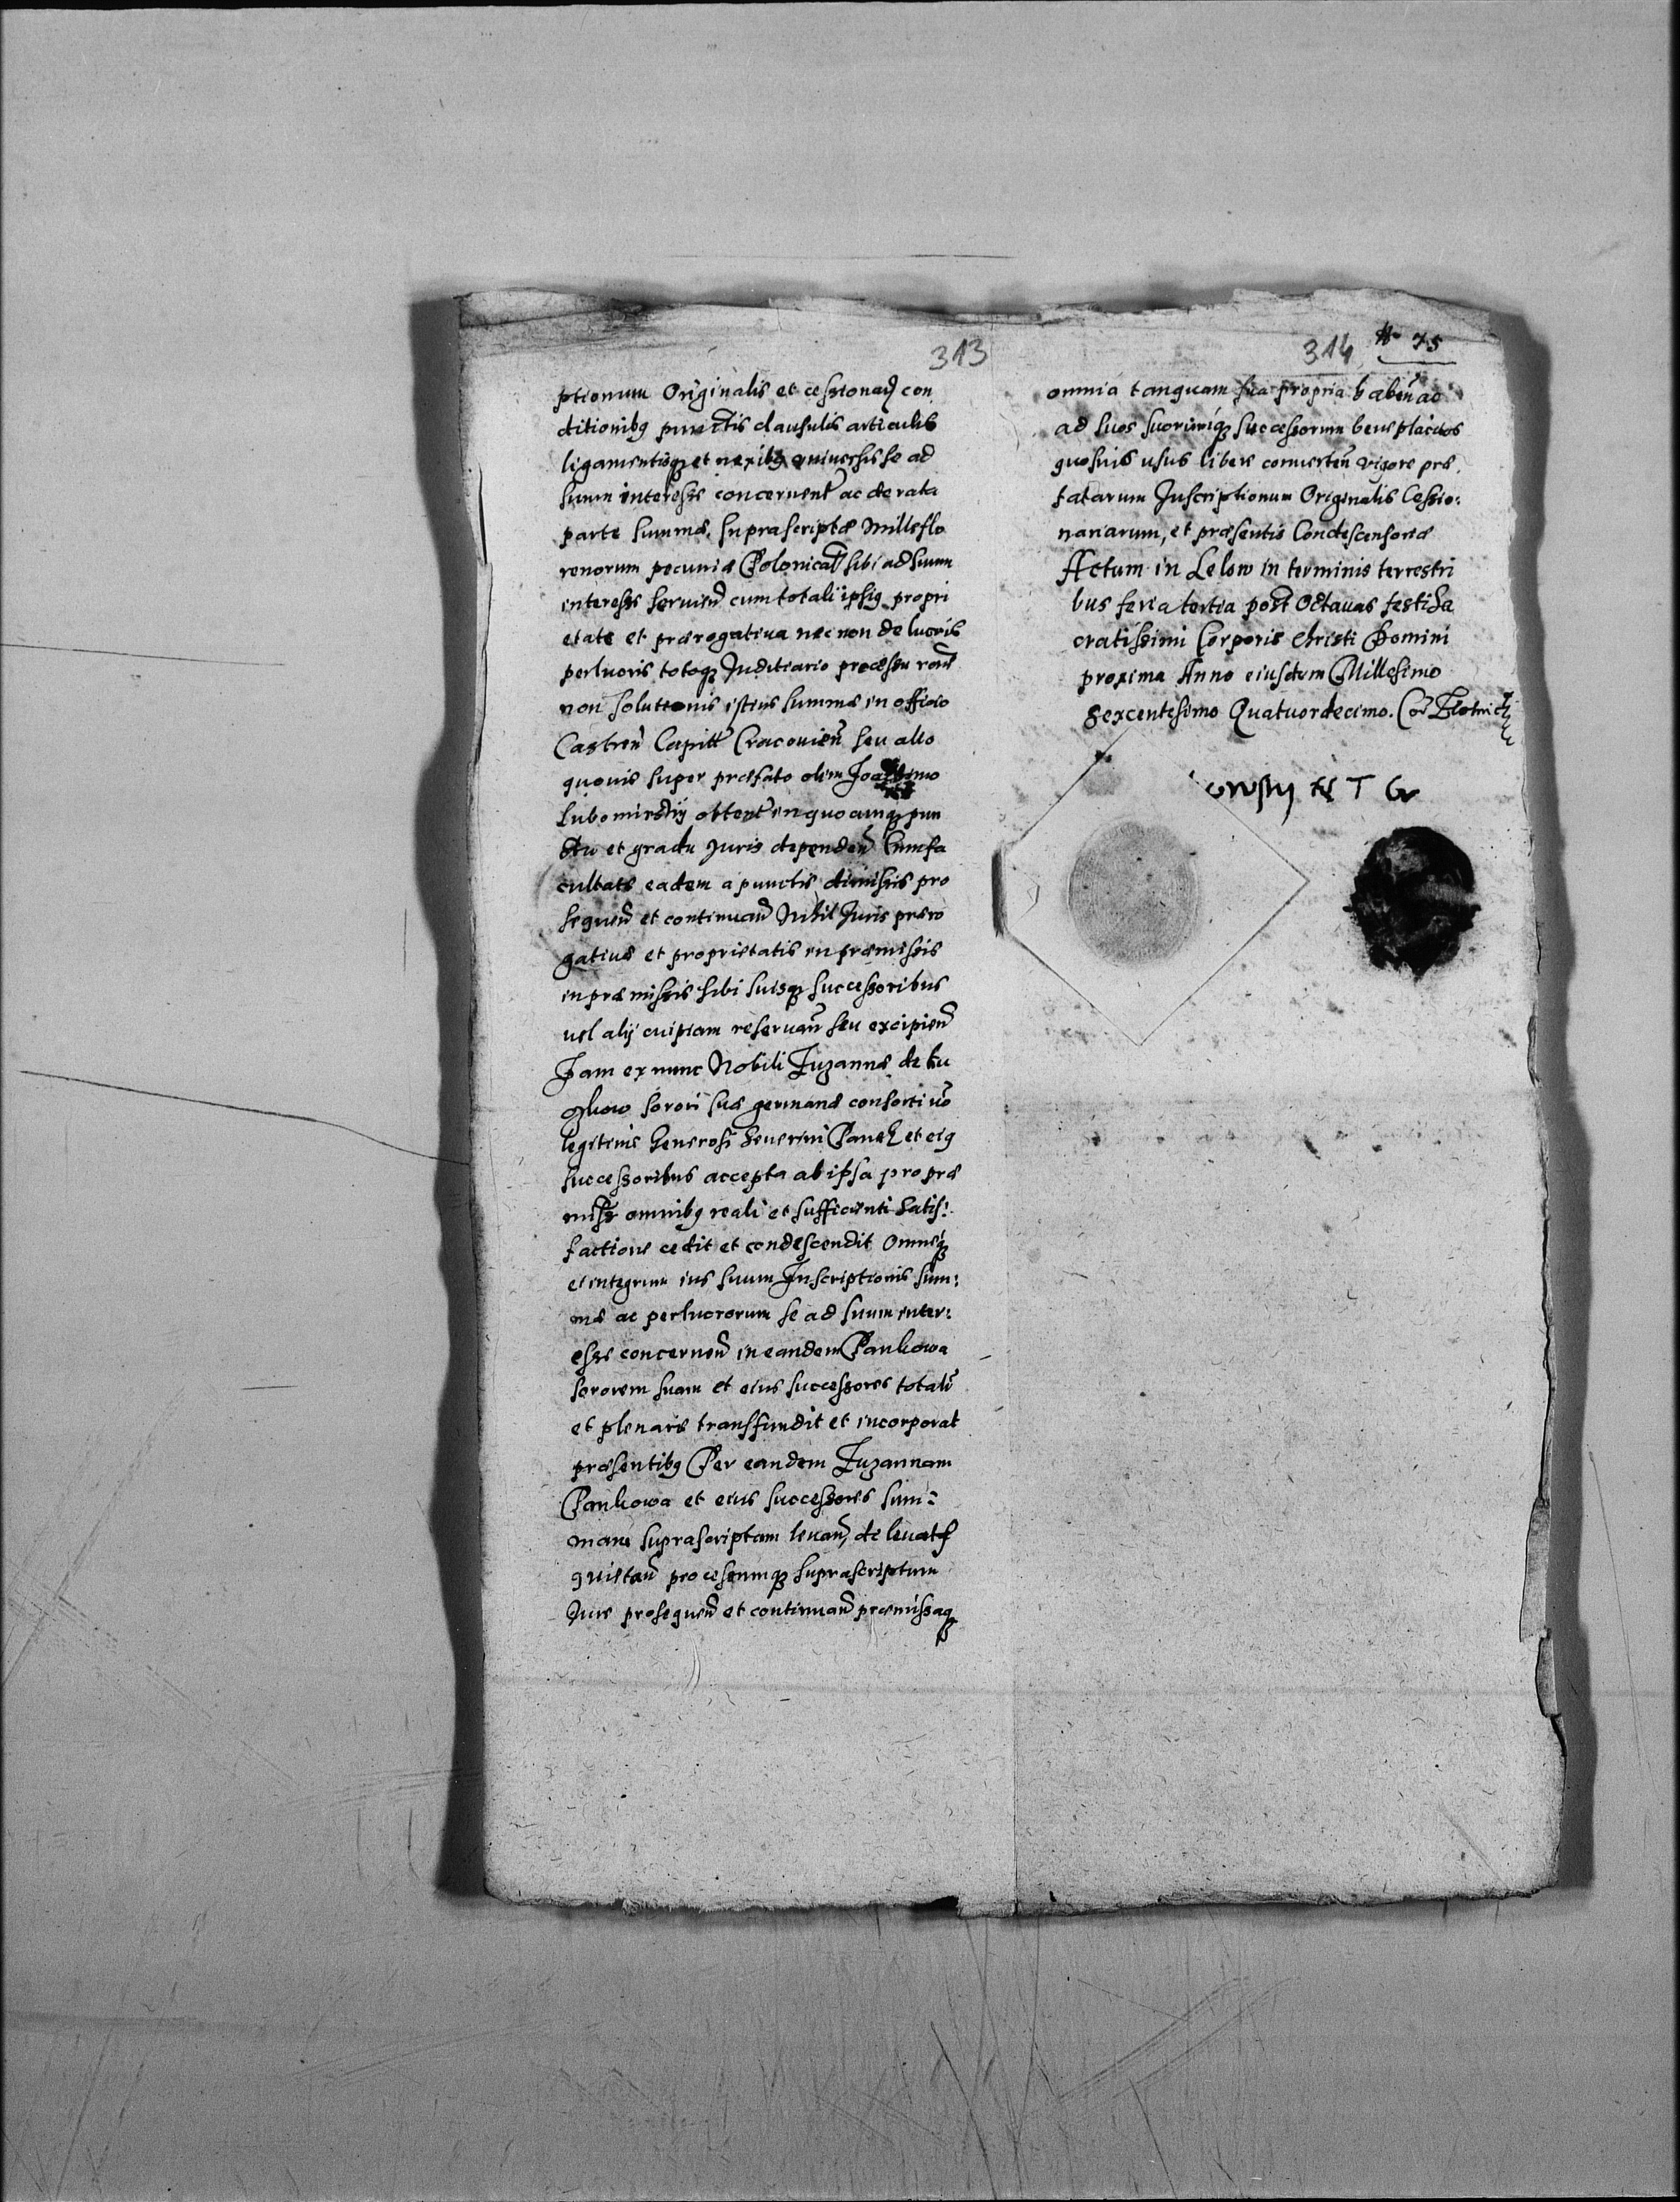 313
ptionum Originalis et cessionarỹ con
ditionibg punctis clausulis articulis
ligamentisqꝫ et nexibg vniuersis se ad
suum interesse concernent ac de rata
parte summæ supra scriptæ Mille flo
renorum pecuniæ Polonicat sibi ad suum
interesse seruieñ cum totali ipsig propri
etate et prærogatiua nec non de lucris
perlucris totoqꝫ Juditiario processu
non solutionis istius summæ in officio
Castreñ Capitt Cracouieñ seu alio
quouis super præfato olim
Lubomirskÿ obtent in quocunqꝫ pun
cto et gradu Juris dependeñ Cum fa
cultate eadem a punctis dimissis pro
sequeñ et continuañ Nihil Juris præro
gatiuæ et proprietatis in præmissis
in præmissis sibi suisqꝫ successoribus
uel alÿ cuipiam reseruañ seu excipieñ
Jam ex nunc Nobili Zuzannæ de
sorori suæ germanæ consorti vo
legitimæ Generosi Seuerini et eig
successoribus accepta ab ipsa pro præ
miss omnibg reali et sufficienti satis:
factione cedit et condescendit Omneqꝫ
et integrum ius suum Inscriptionis sum:
mæ ac perlucrorum se ad suum inter:
esse concerneñ in eandem Pankowa
sororem suam et eius successores totalr
et plenarie transfundit et incorporat
præsentibg Per eandem Zuzannam
Pankowa et eius successores sum:
mam suprascriptam leuañ, de leuat
quietañ processumqꝫ suprascriptum
Jure prosequeñ et continuañ præmissaqꝫ
314 75
omnia tanquam sua propria habeñ ac
ad suos suorumqꝫ successorum beneplacitos
quosuis usus libere conuerteñ vigore præ
fatarum Inscriptionum Originalis Cessio:
nariarum, et præsentis Condescensoriæ
Actum in Lelow in terminis terrestri
bus feria tertia post Octauas festi Sa
cratissimi Corporis Christi Domini
proxima Anno eiusdem Millesimo
Sexcentesimo Quatuordecimo.